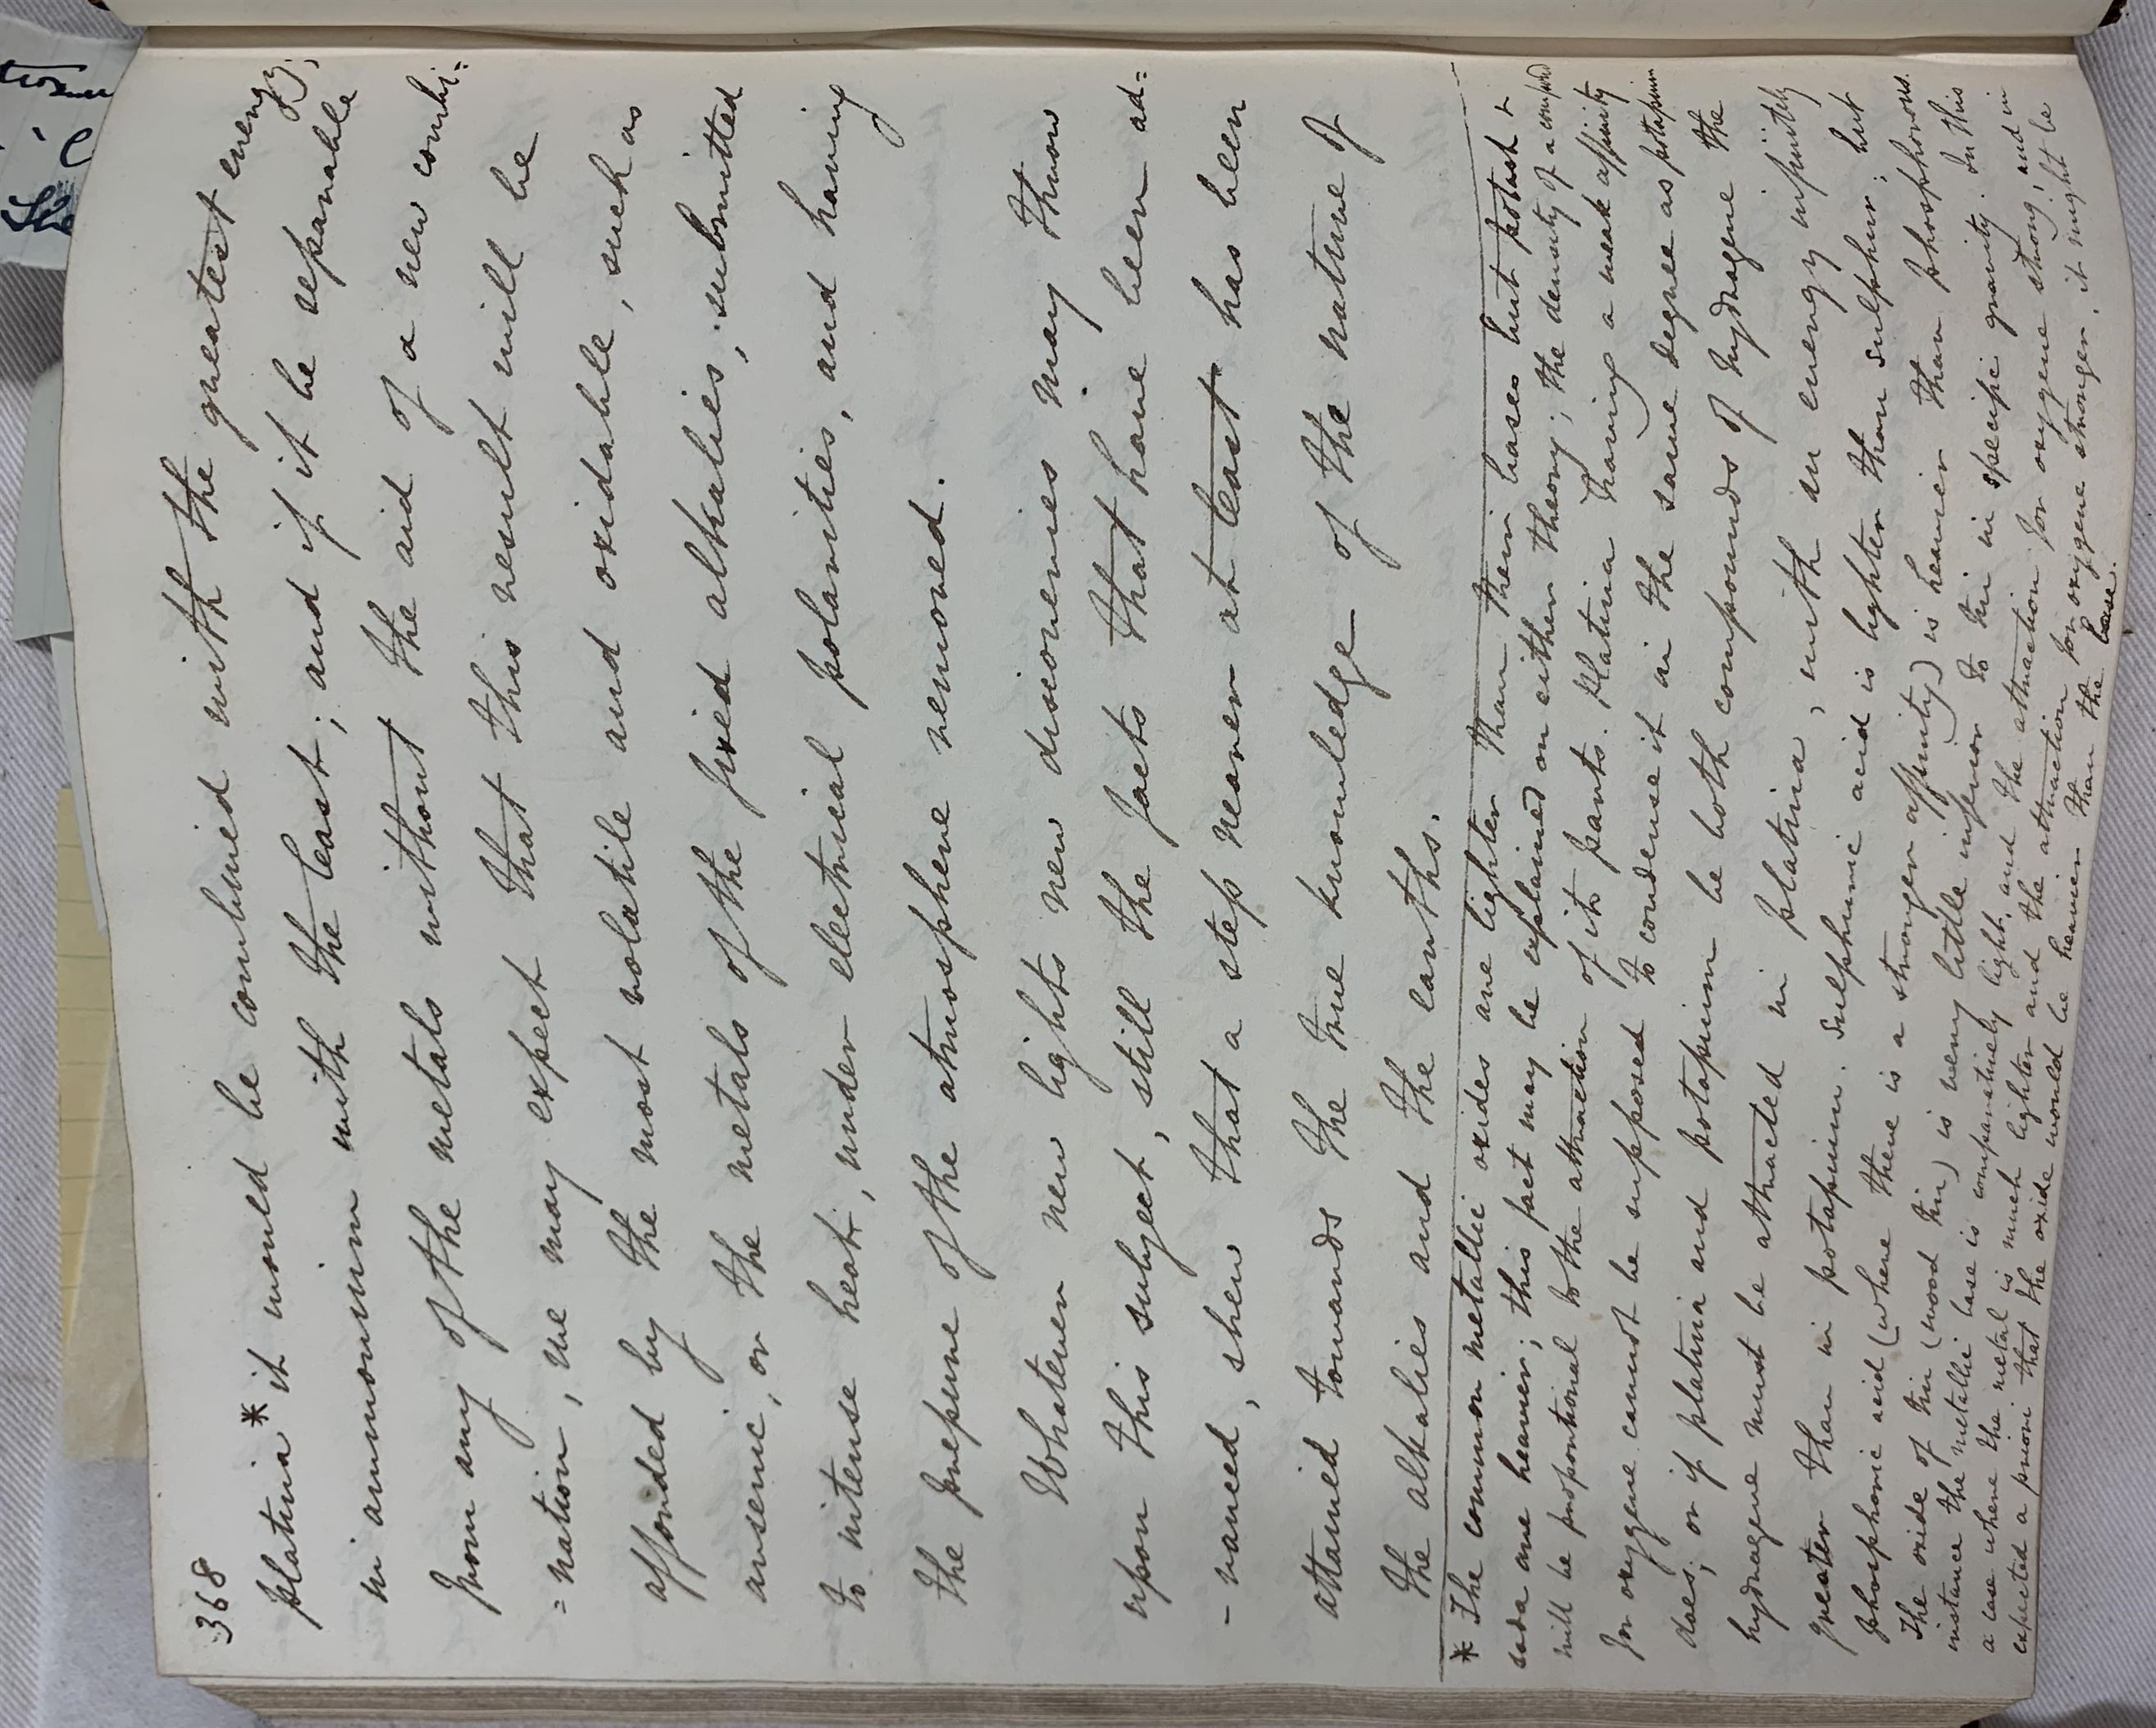 368
platina * it would be combined with the greatest energy,
in ammonium with the least; and if it be separable
from any of the metals without the aid of a new combi=
=nation, we may expect that this result will be
afforded by the most volatile and oxidable, such as
arsenic, or the metals of the fixed alkalies, submitted
to intense heat, under electrical polarities, and having
the pressure of the atmosphere removed.
Whatever new lights new discoveries may throw
upon this subject, still the facts that have been ad=
-vanced, shew that a step nearer at least has been
attained towards the true knowledge of the nature of
the alkalies and the earths.
* The common metallic oxides are lighter than their bases but potash &
soda are heavier; this fact may be explained on either theory; the density of a compound
will be proportional to the attraction of its parts. Platina having a weak affinity
for oxygene cannot be supposed to condense it in the same degree as potassium
does; or if platina and potassium be both compounds of hydrogene the
hydrogene must be attracted in platina, with an energy infinitely
greater than in potassium. Sulphuric acid is lighter than sulphur; but
phosphoric acid (where there is a stronger affinity) is heavier than phosphorous.
The oxide of tin (wood tin) is very little inferior to tin in specific gravity. In this
instance the metallic base is comparatively light, and the attraction for oxygene strong; and in
a case where the metal is much lighter and the attraction for oxygene stronger, it might be
expected a priori that the oxide would be heavier than the base.